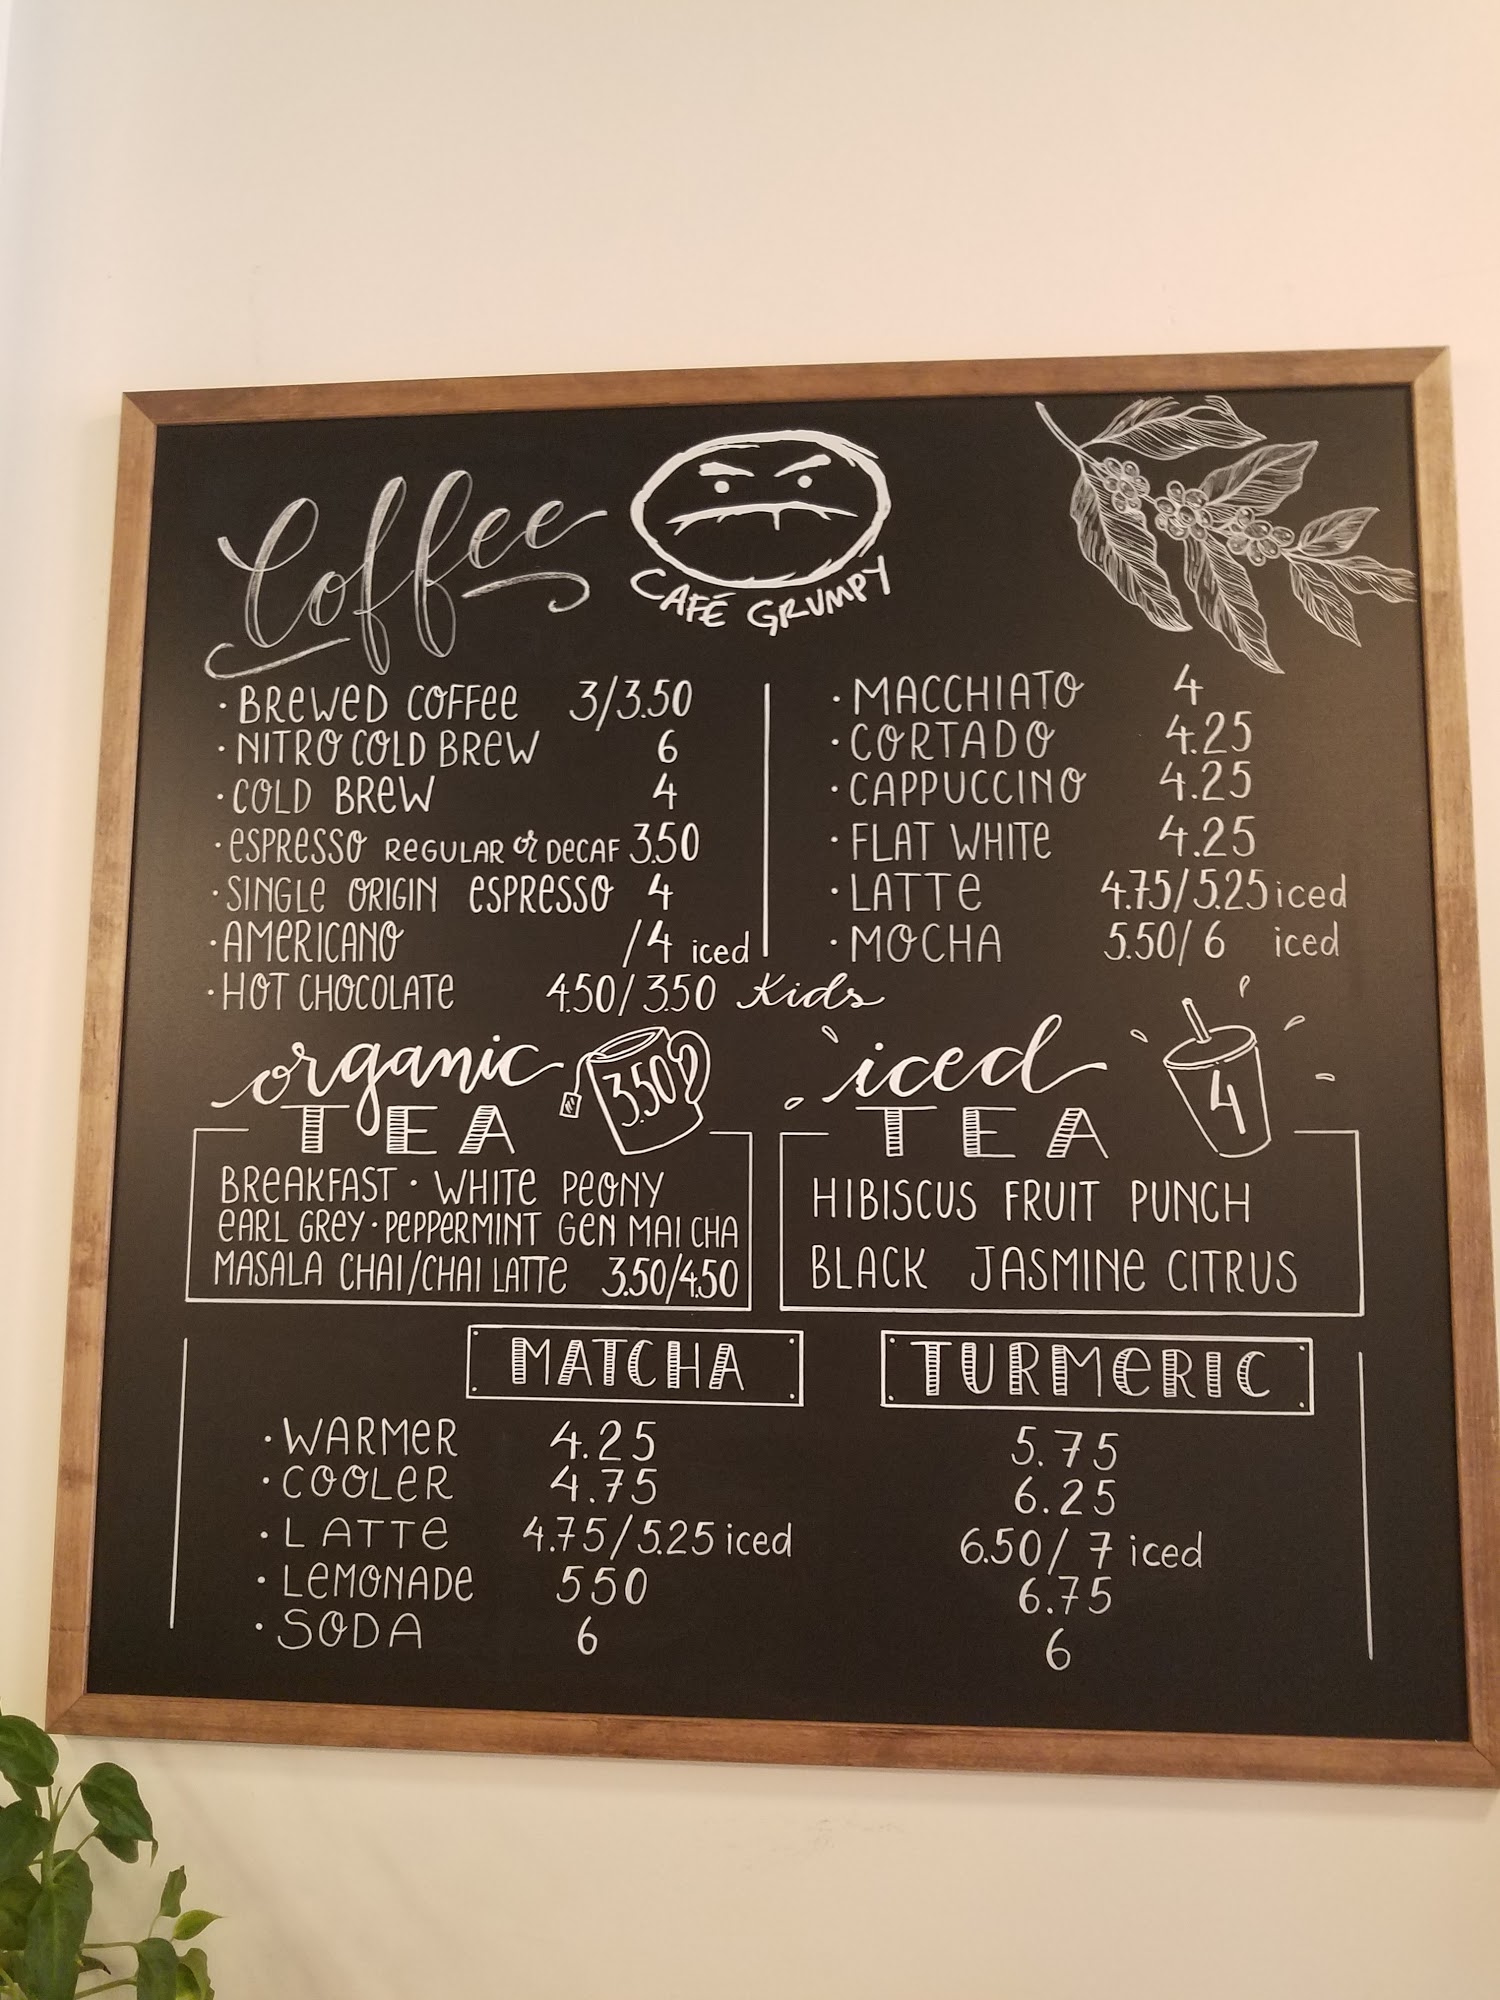 Coffee
CAFÉ GRUMPY
· BREWED COFFEE 3/3.50
· NITRO COLD BREW 6
· COLD BREW 4
· ESPRESSO REGULAR or DECAF 3.50
· SINGLE ORIGIN ESPRESSO 4
· AMERICANO /4 iced
· HOT CHOCOLATE 4.50/3.50 Kids
· MACCHIATO 4
· CORTADO 4.25
· CAPPUCCINO 4.25
· FLAT WHITE 4.25
· LATTE 4.75/5.25 iced
· MOCHA 5.50/6 iced
organic
TEA
3.50
BREAKFAST · WHITE PEONY
EARL GREY · PEPPERMINT GEN MAI CHA
MASALA CHAI/CHAI LATTE 3.50/4.50
iced
TEA
4
HIBISCUS FRUIT PUNCH
BLACK JASMINE CITRUS
MATCHA TURMERIC
· WARMER 4.25 5.75
· COOLER 4.75 6.25
· LATTE 4.75/5.25 iced 6.50/7 iced
· LEMONADE 550 6.75
· SODA 6 6